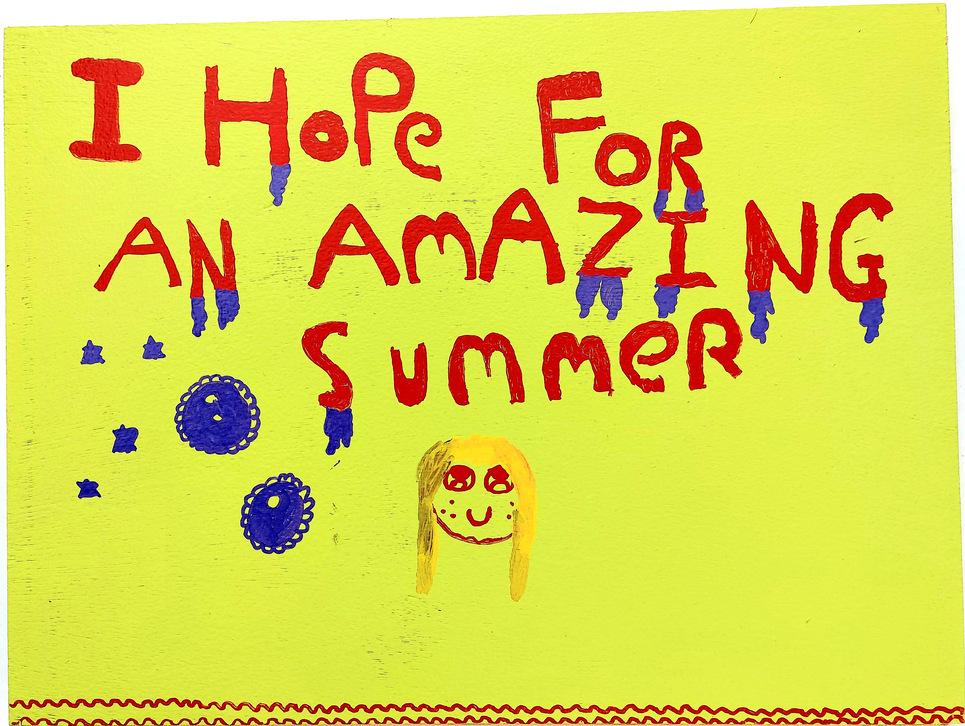 I HoPe FoR
AN AmAZING
SummeR